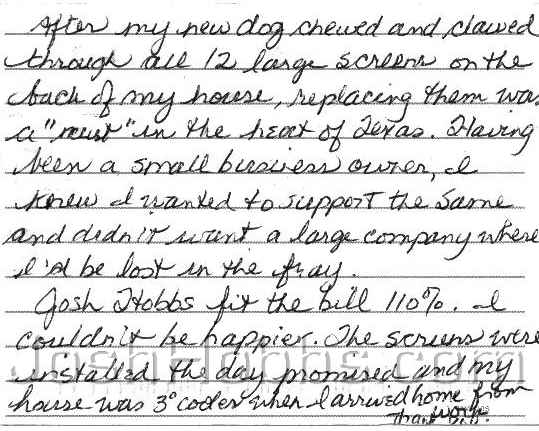 After my new dog chewed and clawed
through all 12 large screens on the
back of my house, replacing them was
a "must" in the heat of Texas. Having
been a small business owner, I
knew I wanted to support the same
and didn't want a large company where
I'd be lost in the fray.
Josh Hobbs fit the bill 110%. I
couldn't be happier. The screens were
JoshHobbs.com
installed the day promised and my
house was 3° cooler when I arrived home from
work.